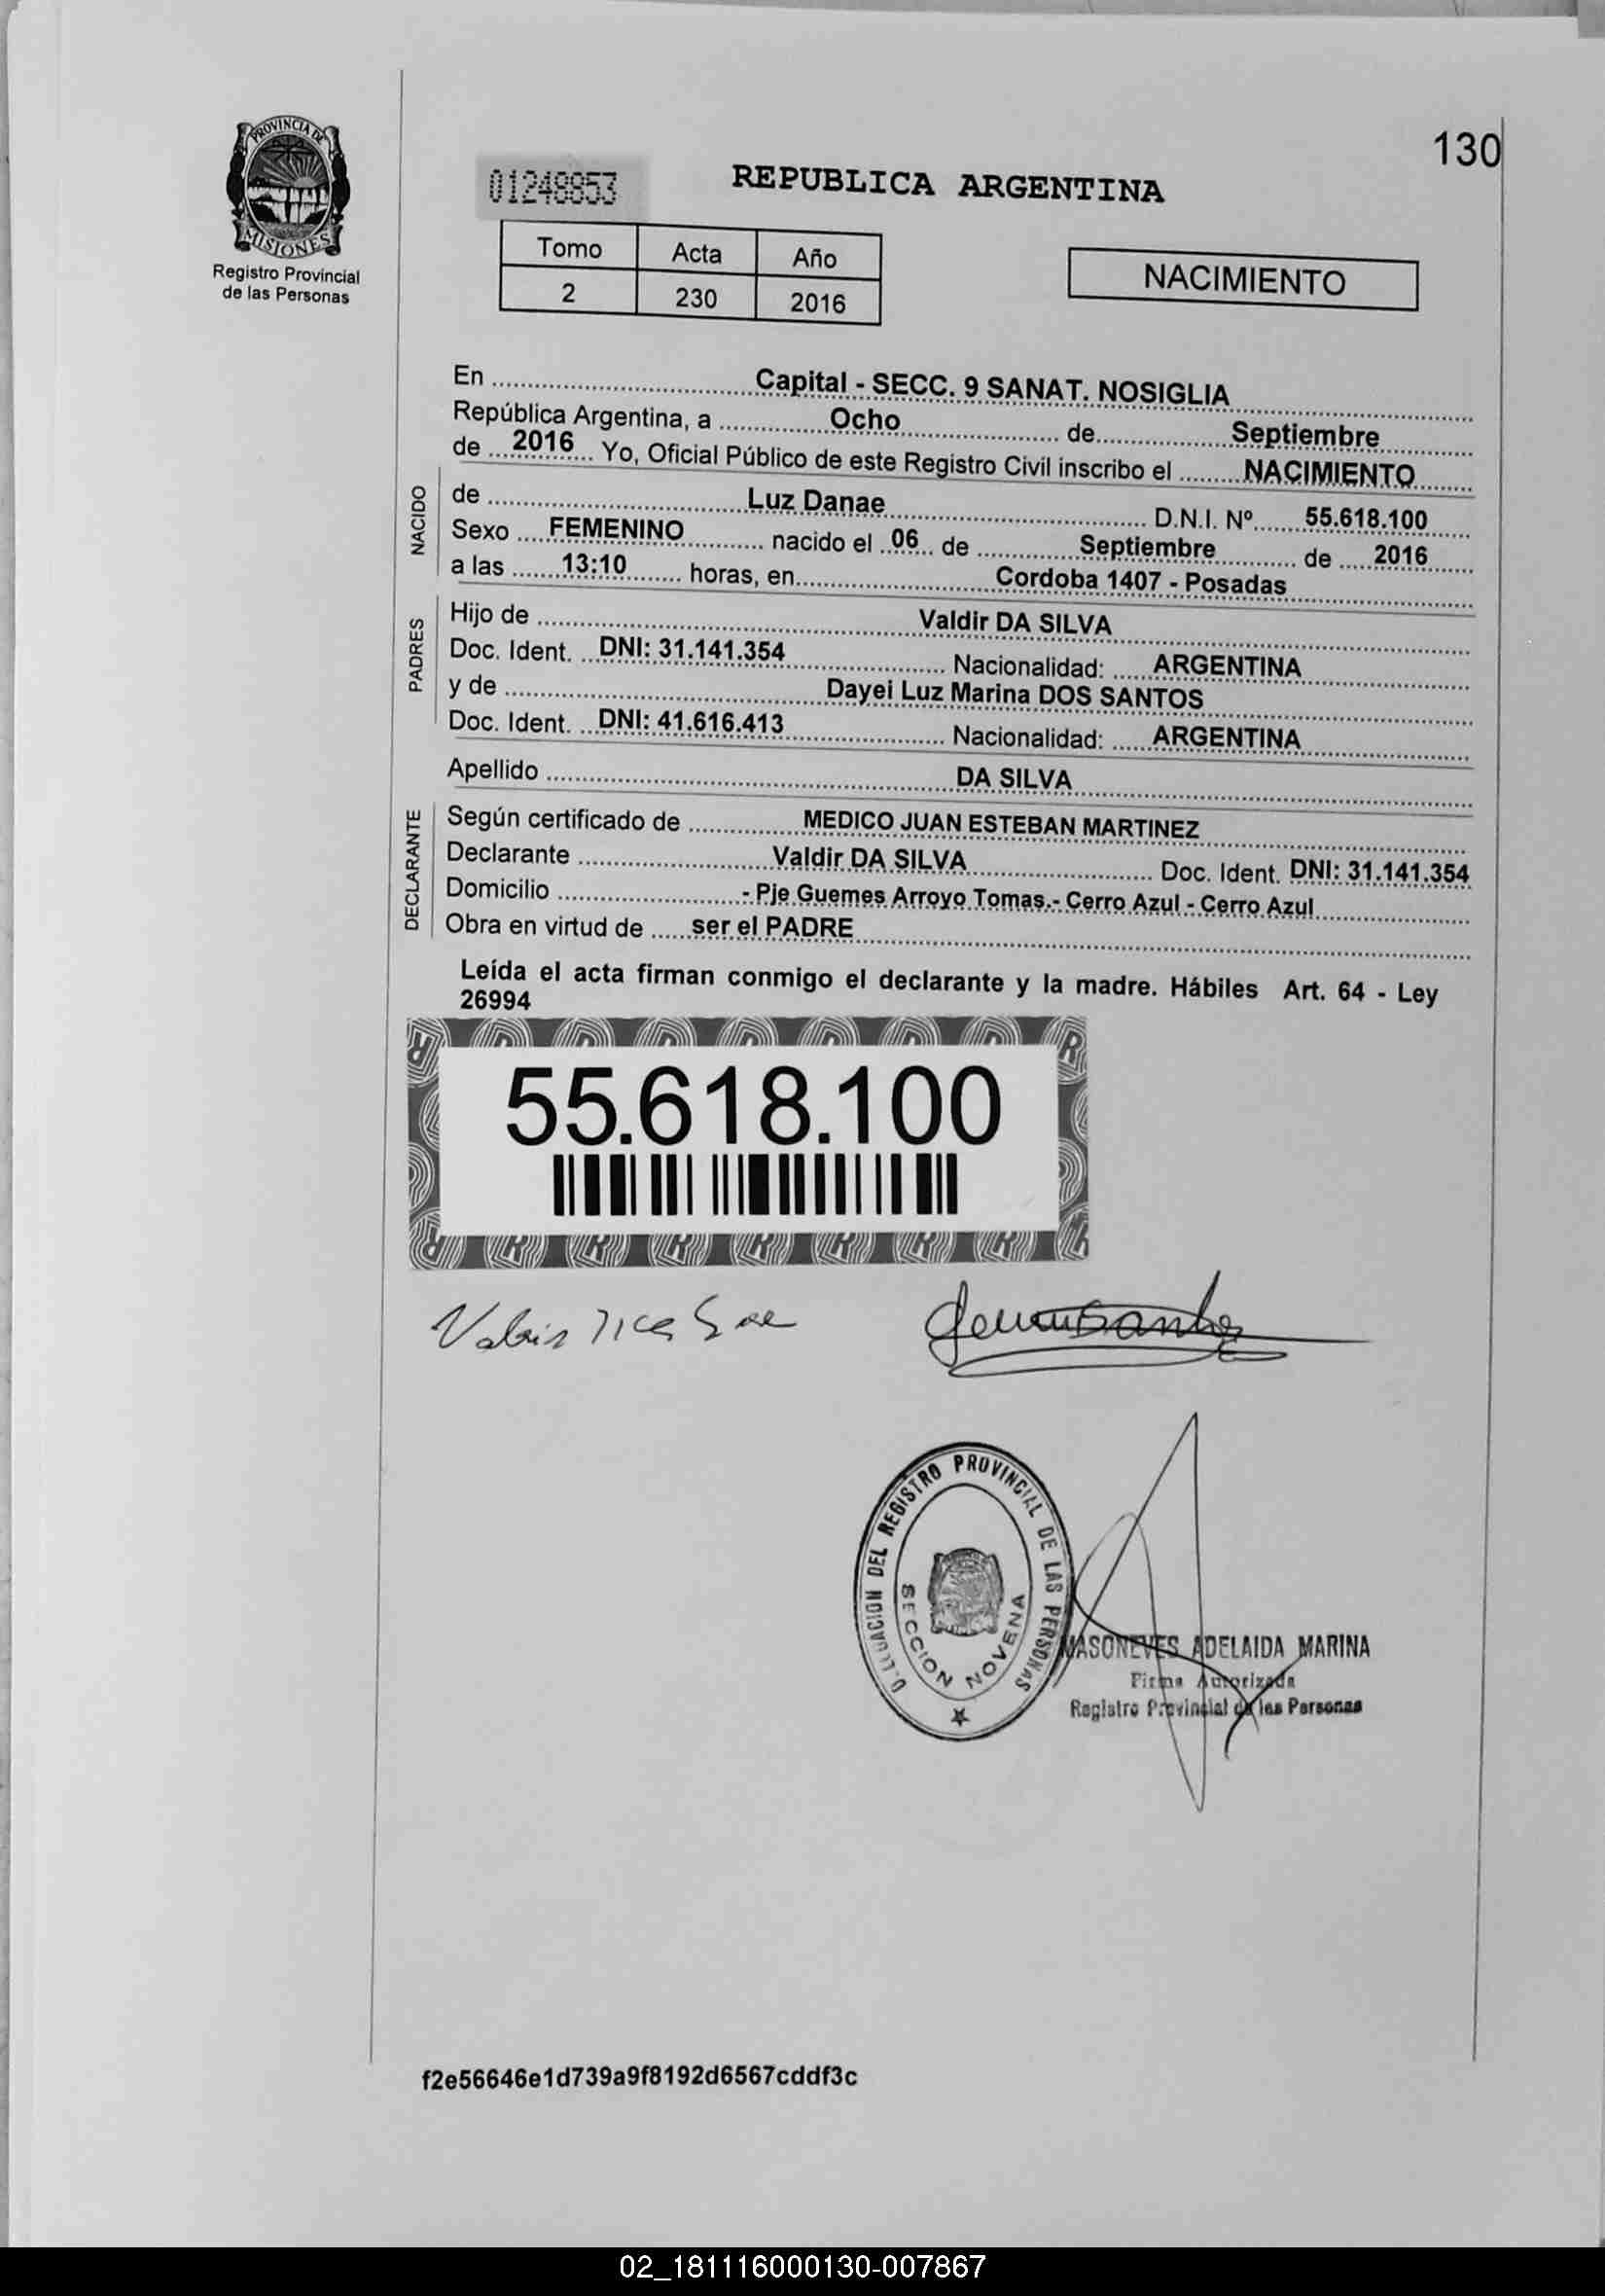 PROVINCIA DE
MISIONES
Registro Provincial
de las Personas
130
01248853
REPUBLICA ARGENTINA
Tomo Acta Año
2 230 2016
NACIMIENTO
En Capital - SECC. 9 SANAT. NOSIGLIA
República Argentina, a Ocho de Septiembre
de 2016 Yo, Oficial Público de este Registro Civil inscribo el NACIMIENTO
NACIDO
de Luz Danae D.N.I. Nº 55.618.100
Sexo FEMENINO nacido el 06 de Septiembre de 2016
a las 13:10 horas, en Cordoba 1407 - Posadas
PADRES
Hijo de Valdir DA SILVA
Doc. Ident. DNI: 31.141.354 Nacionalidad: ARGENTINA
y de Dayei Luz Marina DOS SANTOS
Doc. Ident. DNI: 41.616.413 Nacionalidad: ARGENTINA
Apellido DA SILVA
DECLARANTE
Según certificado de MEDICO JUAN ESTEBAN MARTINEZ
Declarante Valdir DA SILVA Doc. Ident. DNI: 31.141.354
Domicilio - Pje Guemes Arroyo Tomas.- Cerro Azul - Cerro Azul
Obra en virtud de ser el PADRE
Leída el acta firman conmigo el declarante y la madre. Hábiles Art. 64 - Ley
26994
55.618.100
DEL REGISTRO PROVINCIAL DE LAS PERSONAS
SECCION NOVENA
MASONEVES ADELAIDA MARINA
Firma Autorizada
Registro Provincial de las Personas
f2e56646e1d739a9f8192d6567cddf3c
02_181116000130-007867